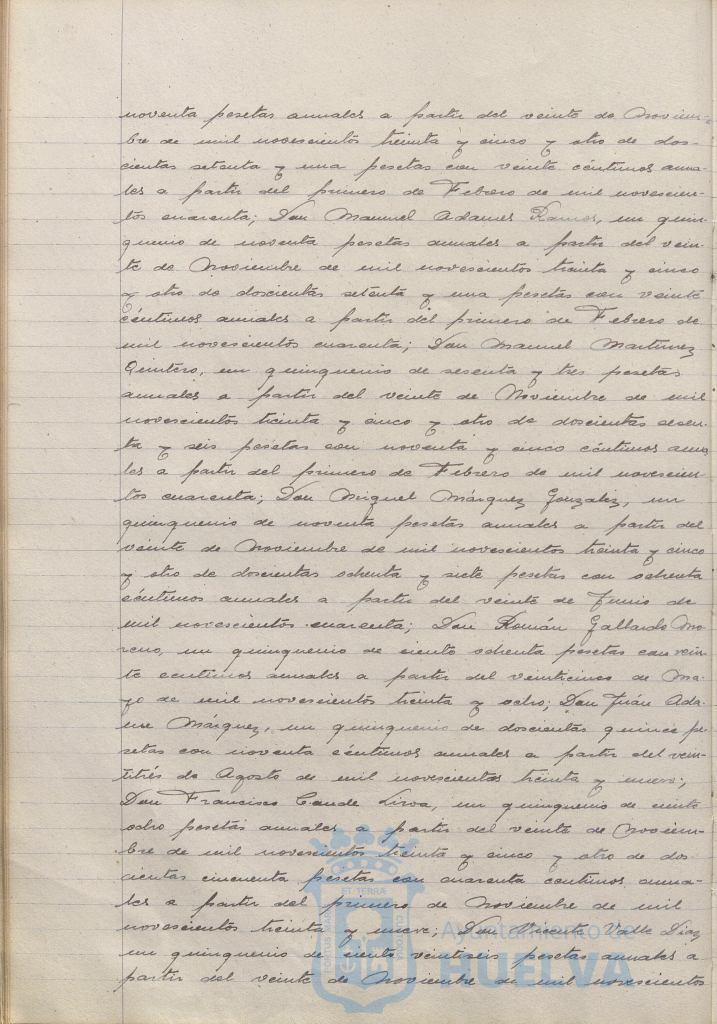 noventa pesetas anuales a partir del veinte de Noviem-
bre de mil novescientos treinta y cinco y otro de dos-
cientas setenta y una pesetas con veinte céntimos anua-
les a partir del primero de Febrero de mil novescien-
tos cuarenta; Don Manuel Adames Ramos, un quin-
quenio de noventa pesetas anuales a partir del vein-
te de Noviembre de mil novescientos treinta y cinco
y otro de doscientas setenta y una pesetas con veinte
céntimos anuales a partir del primero de Febrero de
mil novescientos cuarenta; Don Manuel Martinez
Quintero, un quinquenio de sesenta y tres pesetas
anuales a partir del veinte de Noviembre de mil
novescientos treinta y cinco y otro de doscientas sesen-
ta y seis pesetas con noventa y cinco céntimos anua
les a partir del primero de Febrero de mil novescien-
tos cuarenta; Don Miguel Márquez Gonzalez, un
quinquenio de noventa pesetas anuales a partir del
veinte de Noviembre de mil novescientos treinta y cinco
y otro de doscientas ochenta y siete pesetas con ochenta
céntimos anuales a partir del veinte de Junio de
mil novescientos cuarenta; Don Román Gallardo Mo-
reno, un quinquenio de ciento ochenta pesetas con vein-
te centimos anuales a partir del veinticinco de Ma-
yo de mil novescientos treinta y ocho; Don Juán Ada-
me Márquez, un quinquenio de doscientas quince pe-
setas con noventa céntimos anuales a partir del vein-
titrés de Agosto de mil novescientos treinta y nueve;
Don Francisco Conde, un quinquenio de ciento
ocho pesetas anuales a partir del veinte de Noviem-
bre de mil novescientos treinta y cinco y otro de dos
cientas cincuenta pesetas con cuarenta centimos anua-
les a partir del primero de Noviembre de mil
novescientos treinta y nueve; Don Vicente Valle Diaz
un quinquenio de ciento veintiseis pesetas anuales a
partir del veinte de Noviembre de mil novescientos
PORTUS MARIS ET TERRA CUSTODIA
Ayuntamiento de
HUELVA